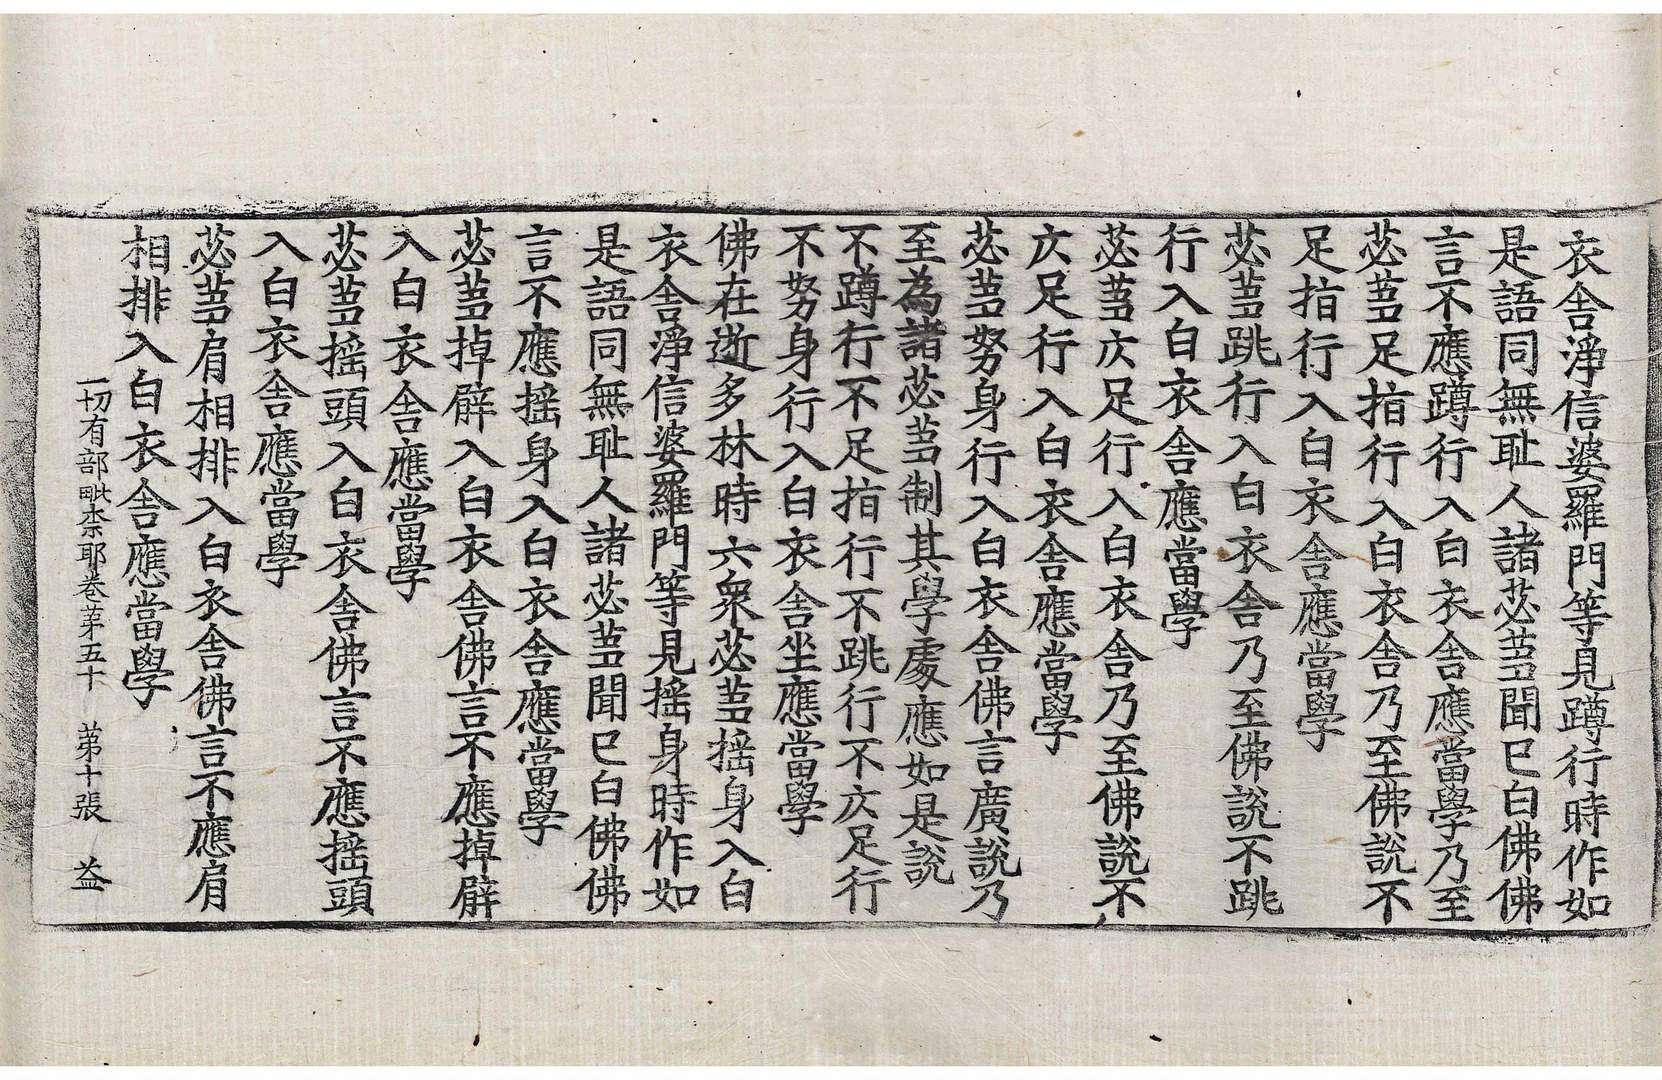 衣舍淨信婆羅門等見蹲行時作如
是語同無耻人諸苾芻聞已白佛佛
言不應蹲行入白衣舍應當學乃至
苾芻足指行入白衣舍乃至佛說不
足指行入白衣舍應當學
苾芻跳行入白衣舍乃至佛說不跳
行入白衣舍應當學
苾芻庂足行入白衣舍乃至佛說不
庂足行入白衣舍應當學
苾芻努身行入白衣舍佛言廣說乃
至為諸苾芻制其學處應如是說
不蹲行不足指行不跳行不庂足行
不努身行入白衣舍坐應當學
佛在逝多林時六衆苾芻搖身入白
衣舍淨信婆羅門等見搖身時作如
是語同無耻人諸苾芻聞已白佛佛
言不應搖身入白衣舍應當學
苾芻掉臂入白衣舍佛言不應掉臂
入白衣舍應當學
苾芻搖頭入白衣舍佛言不應搖頭
入白衣舍應當學
苾芻肩相排入白衣舍佛言不應肩
相排入白衣舍應當學
一切有部毗柰耶卷苐五十 苐十張 益